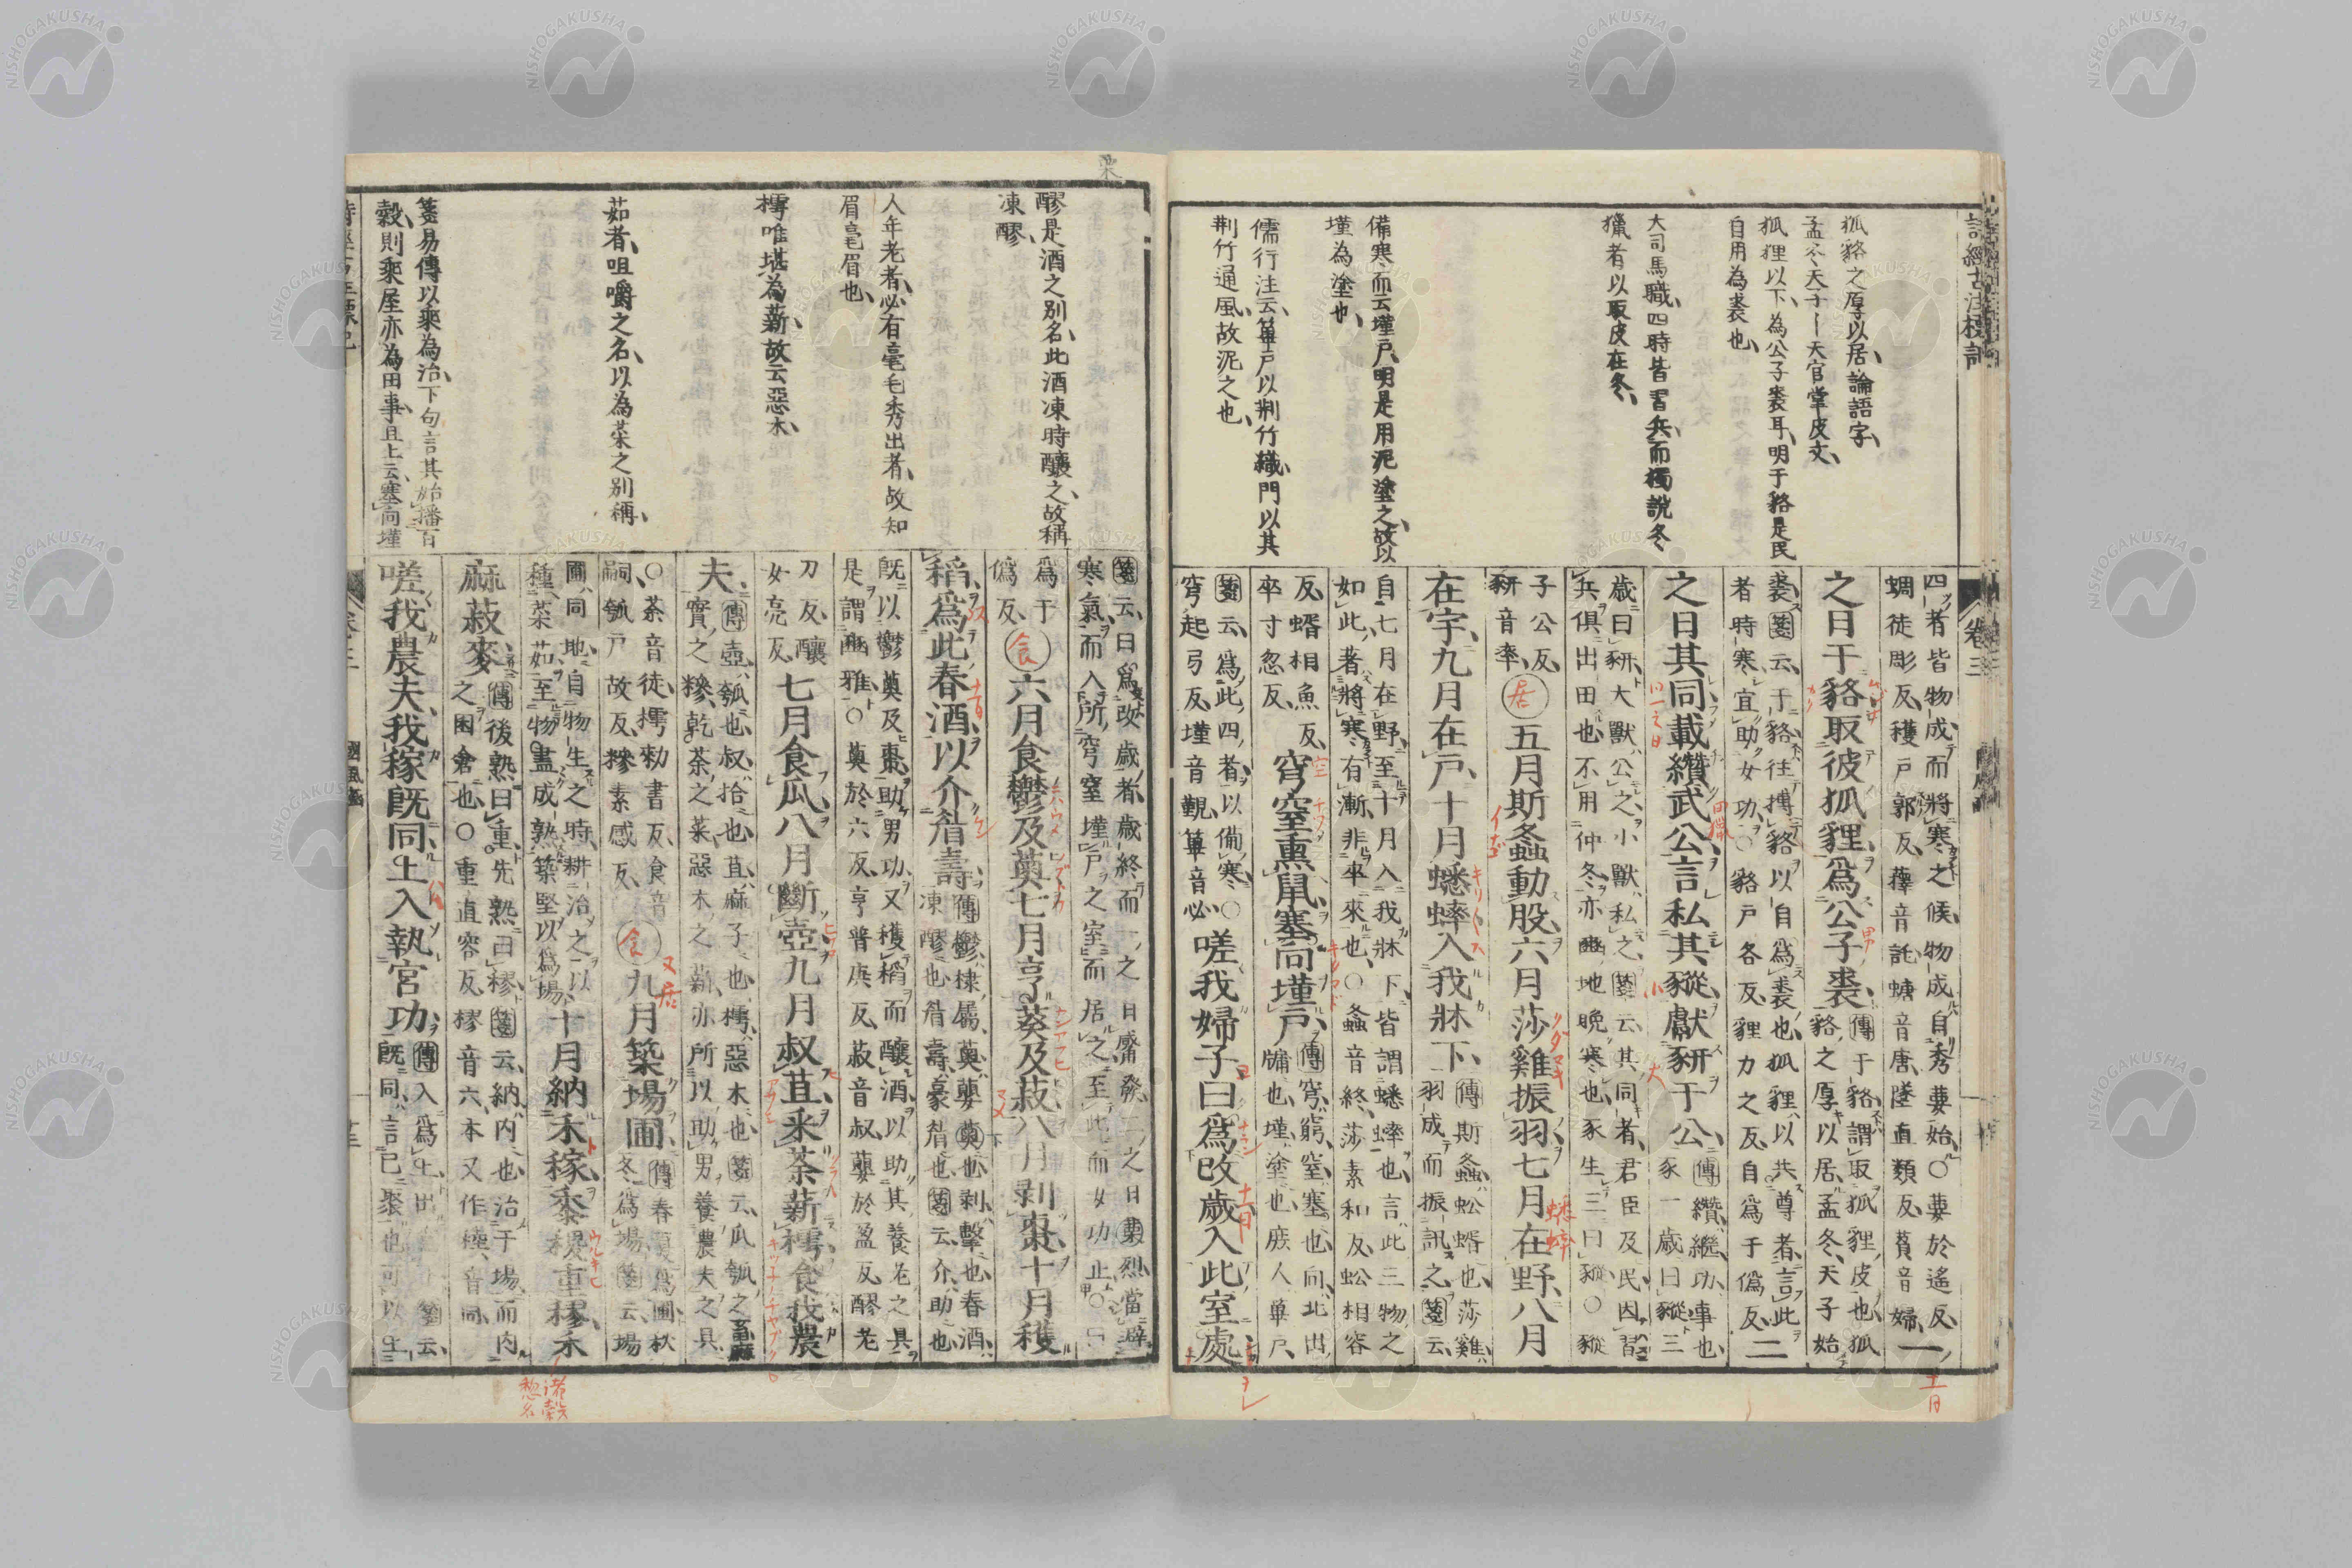 狐貉之厚以居、論語字、
孟冬天子ー天官掌皮文、
狐狸以下、為公子裘耳、明于貉是民
自用為裘也、
大司馬職、四時皆習兵、而獨說冬
獵者以取皮在冬、
備寒而云墐戸、明是用泥塗之、故以
墐為塗也、
儒行注云、篳戸以荆竹織門以其
荆竹通風、故泥之也、
四者皆物成而將寒之候、物成自秀葽始、○葽於遙反、
蜩徒彫反、穫戸郭反、蘀音託、螗音唐、墜直類反、萯音婦、
一
之日于貉取彼狐狸、爲公子裘、
傳于貉、謂取狐狸皮也、狐
貉之厚以居、孟冬、天子始
裘、箋云、于貉往搏貉以自爲裘也、狐狸以共尊者、言此
者時寒宜助女功、○貉戸各反、狸力之反、自爲于僞反、
二
之日其同載纘武公、言私其豵、獻豜于公、
傳纘、繼、功、事也、
豕一歲曰豵、三
歲曰豜、大獸公之、小獸私之、箋云、其同者、君臣及民因習
兵俱出田也、不用仲冬、亦豳地晩寒也、豕生三曰豵、○豵
子公反、
豜音牽、
五月斯螽動股、六月莎雞振羽、七月在野、八月
在宇、九月在戸、十月蟋蟀入我牀下、
傳斯螽、蚣蝑也、莎雞
羽成而振訊之、箋云、
自七月在野、至十月入我牀下、皆謂蟋蟀也、言此三物之
如此、著將寒有漸、非卒來也、○螽音終、莎素和反、蚣相容
反、蝑相魚反、
卒寸忽反、
穹窒熏鼠塞向墐戸、
傳穹、窮、窒、塞也、向、北出
牖也、墐、塗也、庶人篳戸、
箋云、爲此四者以備寒、○
穹起弓反、墐音覲、篳音必、
嗟我婦子曰爲改歲入此室處
醪是酒之别名、此酒凍時釀之、故稱
凍醪、
人年老者、必有毫毛秀出者、故知
眉毫眉也、
樗唯堪為薪、故云惡木、
茹者、咀嚼之名、以為菜之別稱、
箋易傳以乘為治、下句言其始播百
穀、則乘屋亦為田事、且上云塞向墐
箋云、曰爲改歲者、歲終而一之日觱發、二之日栗烈、當避
寒氣、而入所穹窒墐戸之室而居之、至此而女功止、○曰
爲于
僞反、
六月食鬱及薁、七月亨葵及菽、八月剥棗、十月穫
稻、爲此春酒、以介眉壽、
傳鬱、棣屬、薁、蘡薁也、剥、擊也、春酒、
凍醪也、眉壽、豪眉也、箋云、介、助也、
旣以鬱薁及棗助男功、又穫稻而釀酒以助其養老之具、
是謂豳雅、○薁於六反、亨普庚反、菽音叔、蘡於盈反、醪老
刀反、釀
女亮反、
七月食瓜、八月斷壺、九月叔苴、采荼薪樗、食我農
夫、
傳壺、瓠也、叔、拾也、苴、麻子也、樗、惡木也、箋云、瓜瓠之畜、麻
實之糝、乾荼之菜、惡木之薪、亦所以助男養農夫之具、
○荼音徒、樗勑書反、食音
嗣、瓠戸故反、糝素感反、
九月築場圃、
傳春夏爲圃、秋
冬爲場、箋云、場
圃同地、自物生之時、耕治之以
種菜茹、至物盡成熟、築堅以爲場、
十月納禾稼、黍稷重穋、禾
麻菽麥、
傳後熟曰重、先熟曰穋、箋云、納、内也、治于場而内
之囷倉也、○重直容反、穋音六、本又作稑、音同、
嗟我農夫、我稼旣同、上入執宮功、
傳入爲上、出
箋云、
旣同、言已聚也、可以上